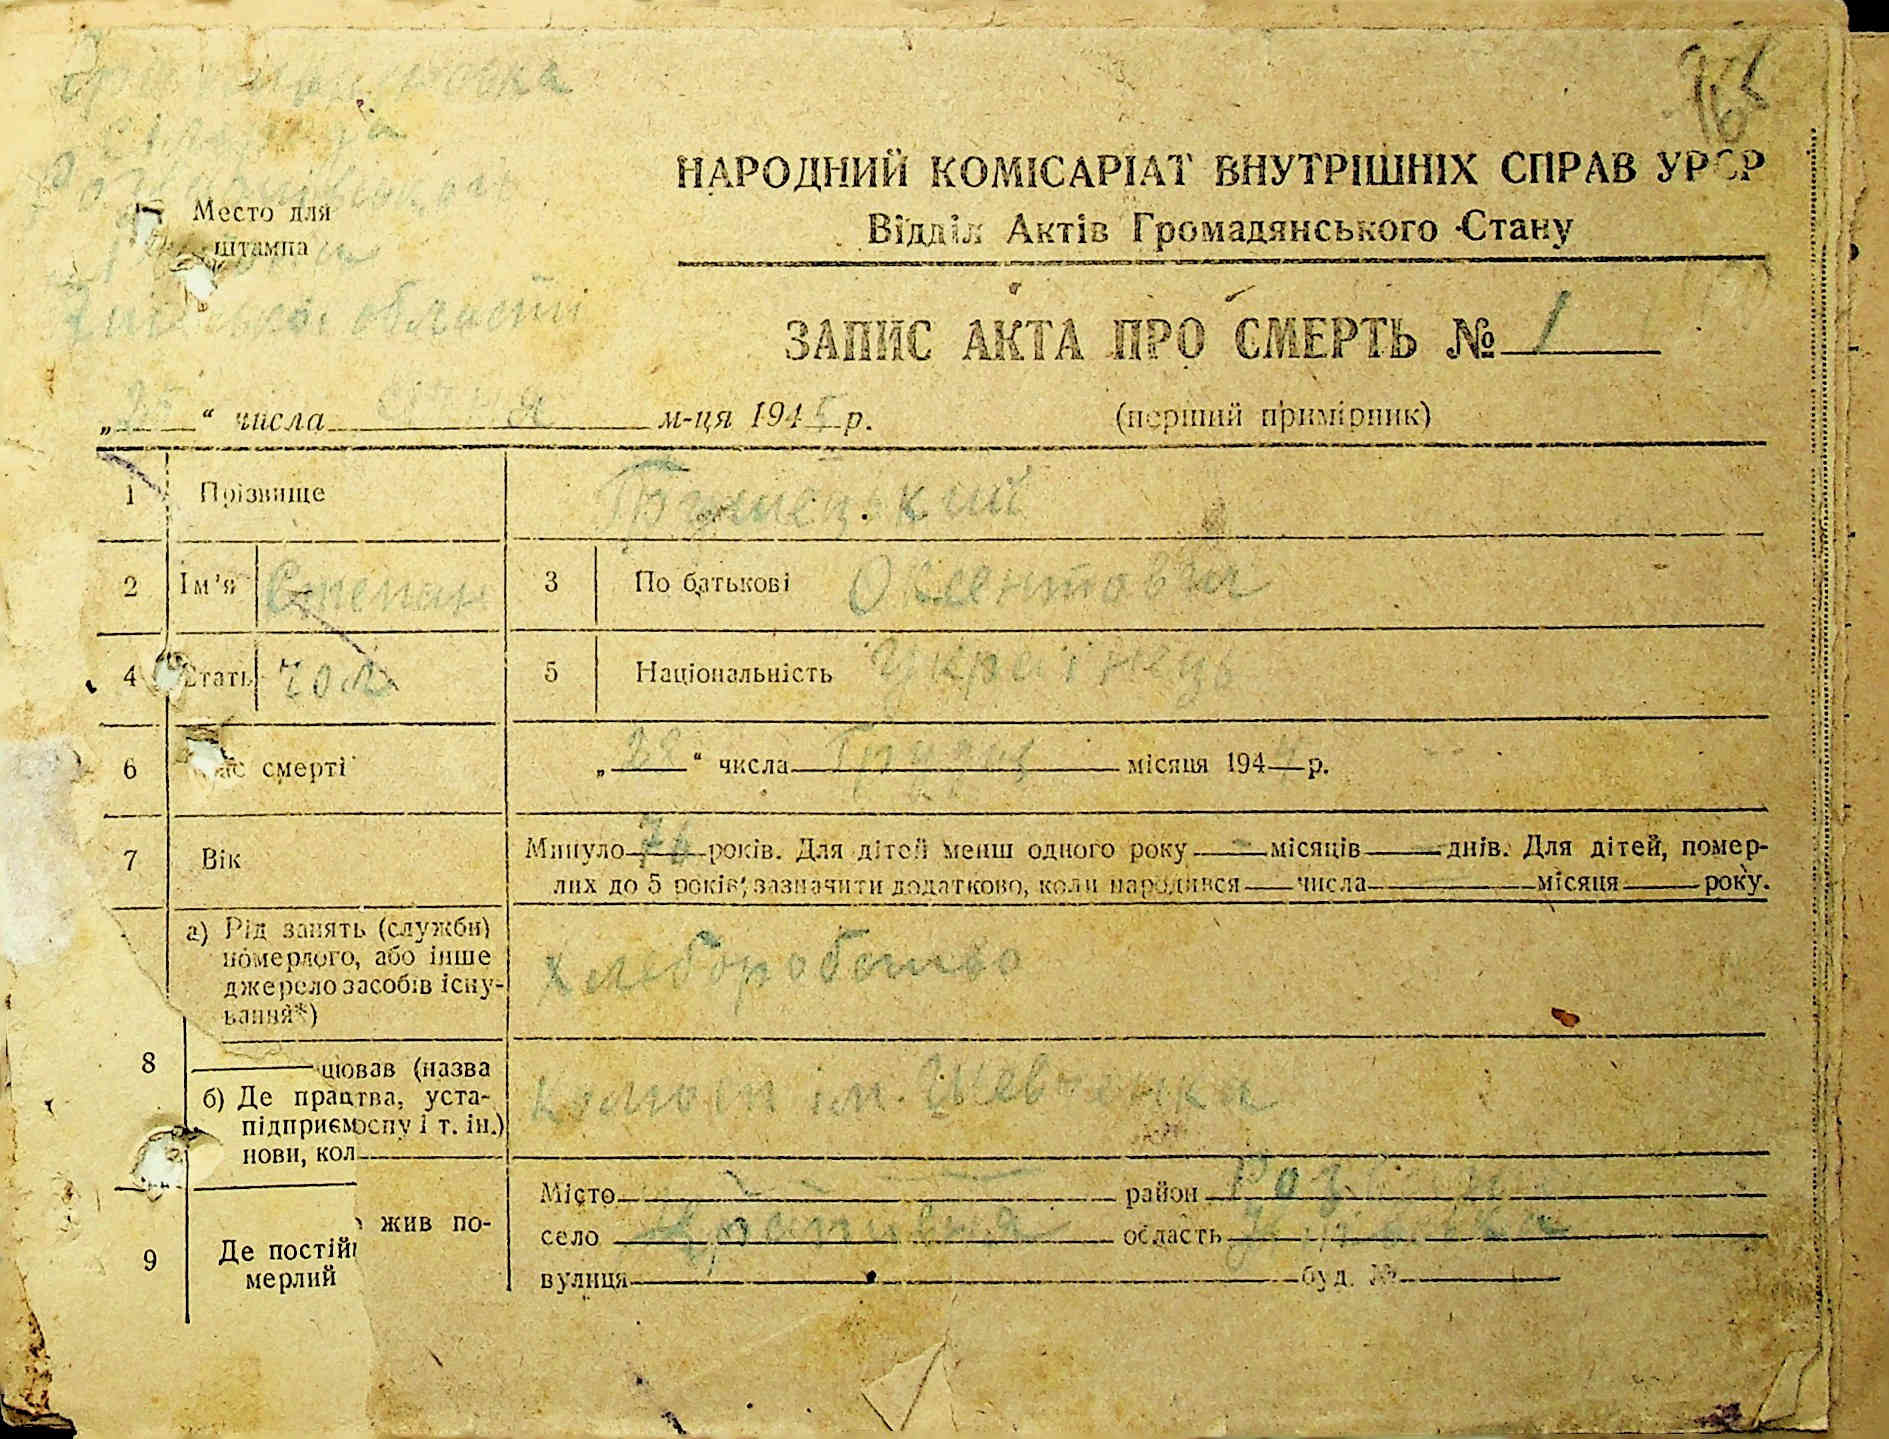 сілрада
Место для
штампа
області
НАРОДНИЙ КОМІСАРІАТ ВНУТРІШНІХ СПРАВ УРСР
Відділ Актів Громадянського Стану
ЗАПИС АКТА ПРО СМЕРТЬ № 1
„ “ числа м-ця 1945 р. (перший примірник)
1 Прізвище
2 Ім'я Степан 3 По батькові Оксентович
4 Стать чол 5 Національність Українець
6 Час смерті „28“ числа Грудня місяця 1944 р.
7 Вік Минуло 76 років. Для дітей менш одного року - місяців днів. Для дітей, помер-
лих до 5 років, зазначити додатково, коли народився числа місяця року.
а) Рід занять (служби)
померлого, або інше
джерело засобів існу-
вання*)
хлеборобство
8
цював (назва
б) Де працтва, уста-
підприємоспу і т. ін.)
нови, кол
колгосп ім. Шевченка
Місто район
село область
вулиця буд. №
9 Де постій жив по-
мерлий